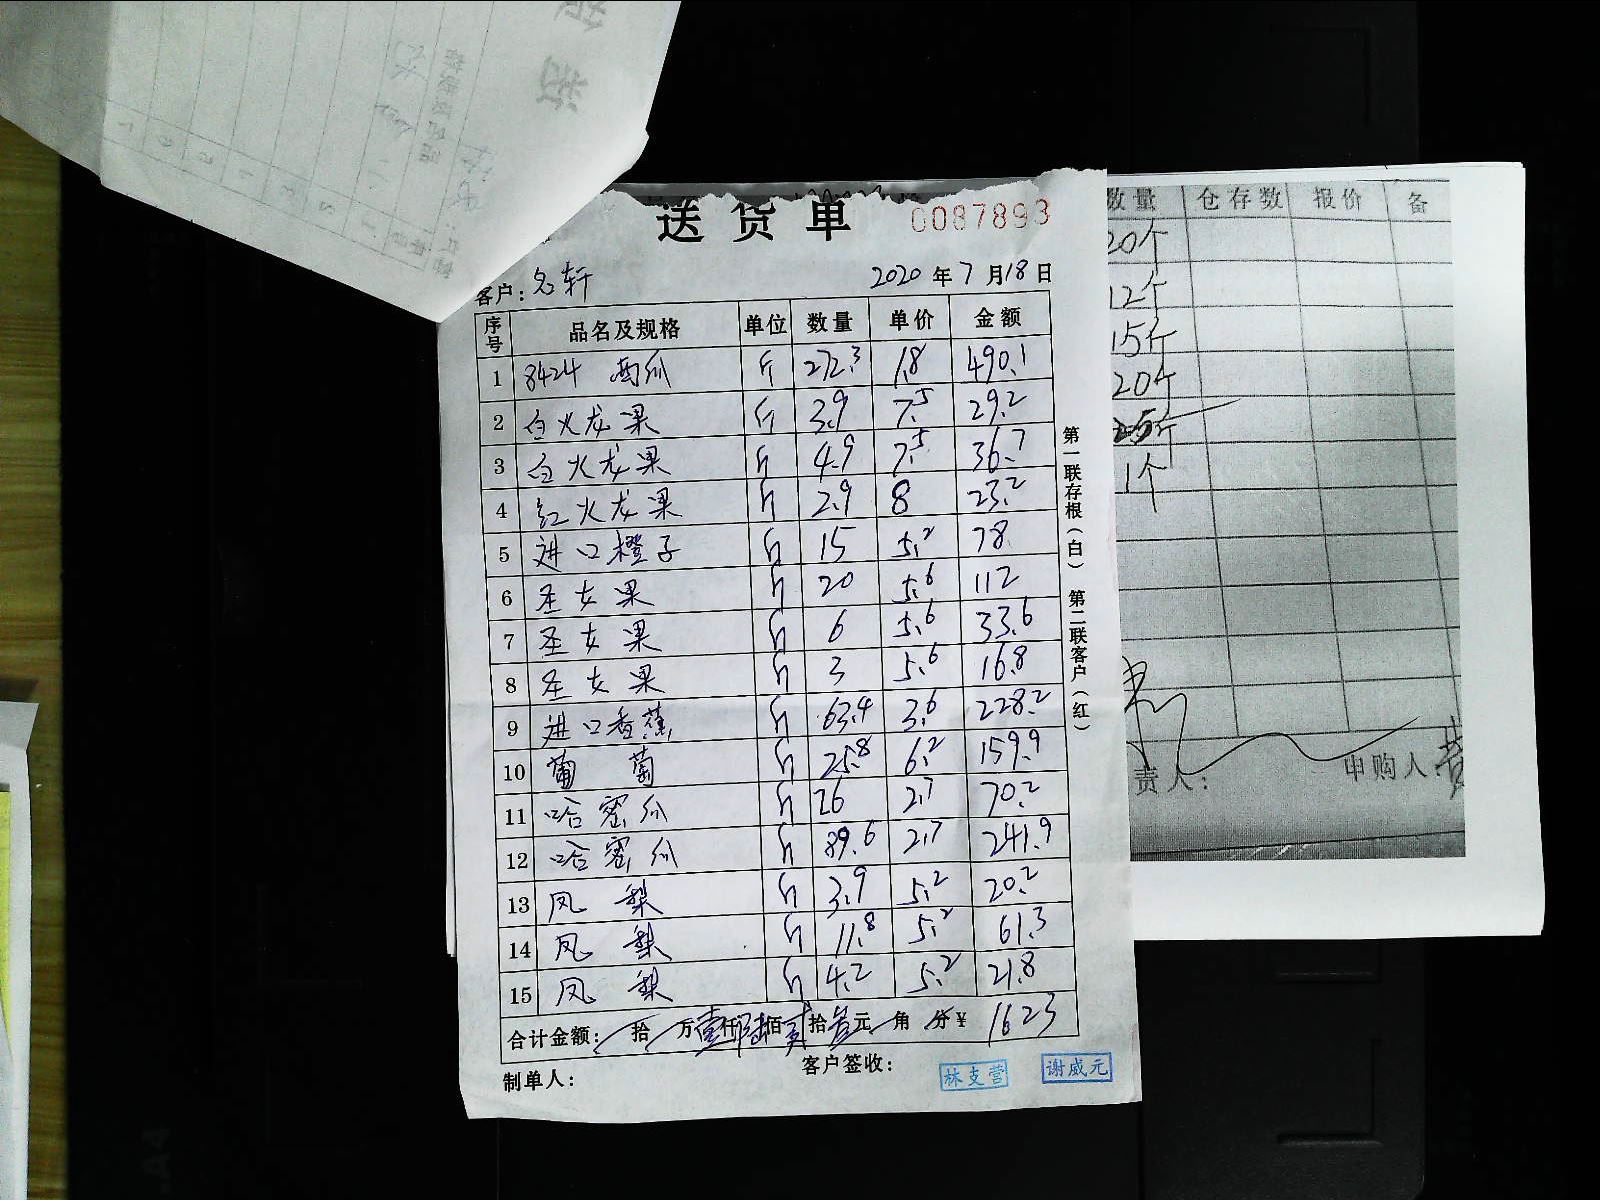 送货单 0087893
客户: 名轩 2020年7月18日
序号 品名及规格 单位 数量 单价 金额
1 8424 西瓜 斤 272.3 1.8 490.1
2 白火龙果 斤 3.9 7.5 29.2
3 白火龙果 斤 4.9 7.5 36.7
4 红火龙果 斤 2.9 8 23.2
5 进口橙子 斤 15 5.2 78
6 圣女果 斤 20 5.6 112
7 圣女果 斤 6 5.6 33.6
8 圣女果 斤 3 5.6 16.8
9 进口香蕉 斤 63.4 3.6 228.2
10 葡萄 斤 25.8 6.2 159.9
11 哈密瓜 斤 26 2.7 70.2
12 哈密瓜 斤 89.6 2.7 241.9
13 凤梨 斤 3.9 5.2 20.2
14 凤梨 斤 11.8 5.2 61.3
15 凤梨 斤 4.2 5.2 21.8
合计金额: 拾 万壹仟陆佰贰拾叁元 角 分¥ 1623
制单人: 客户签收: 林支营 谢威元
第一联存根(白) 第二联客户(红)
数量 仓存数 报价 备
20个
12个
15个
20个
25个
1个
责人: 申购人